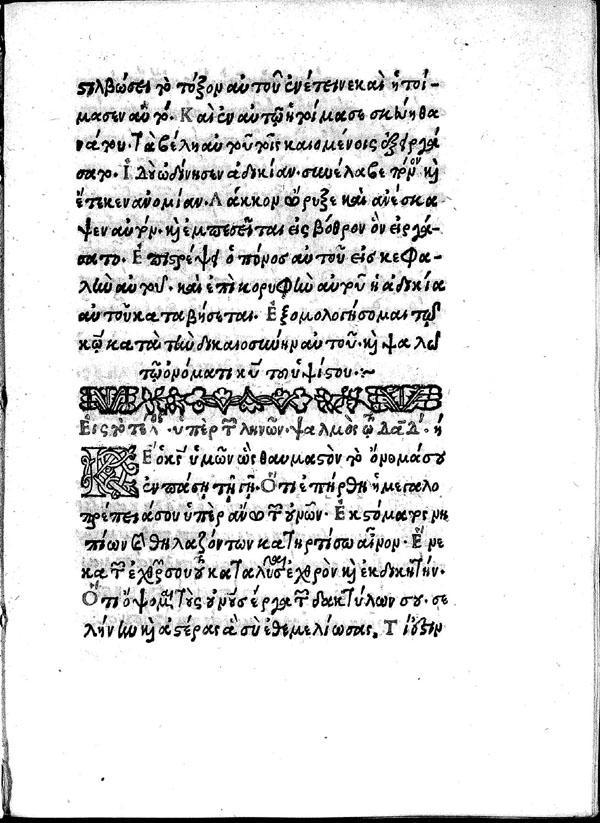 στιλβώσει τὸ τόξον αὐτοῦ ἐνέτεινε καὶ ἡτοί-
μασεν αὐτό. Καὶ ἐν αὐτῷ ἡτοίμασε σκεύη θα
νάτου. Τὰ βέλη αὐτοῦ τοῖς καιομένοις ἐξειργά
σατο. Ἰδοὺ ὠδίνησεν ἀδικίαν. συνέλαβε πόνον καὶ
ἔτεκεν ἀνομίαν. Λάκκον ὤρυξε καὶ ἀνέσκα
ψεν αὐτόν. καὶ ἐμπεσεῖται εἰς βόθρον ὃν εἰργά-
σατο. Ἐπιστρέψει ὁ πόνος αὐτοῦ εἰς κεφα-
λὴν αὐτοῦ. καὶ ἐπὶ κορυφὴν αὐτοῦ ἡ ἀδικία
αὐτοῦ καταβήσεται. Ἐξομολογήσομαι τῷ
κω κατὰ τὴν δικαιοσύνην αὐτοῦ. καὶ ψαλῶ
τῷ ὀνόματι κυ τοῦ ὑψίστου :~
Εἰς τὸ τέλος. ὑπὲρ τῶν ληνῶν. ψαλμὸς τῷ Δαδ. ή
ΚΕ ὁ κς ἡμῶν ὡς θαυμαστὸν τὸ ὄνομά σου
ἐν πάσῃ τῇ γῇ. Ὅτι ἐπήρθη ἡ μεγαλο
πρέπειά σου ὑπεράνω τῶν ουνῶν. Ἐκ στόματος νη
πίων καὶ θηλαζόντων κατηρτίσω αἶνον. Ἕνε
κα τῶν ἐχθρῶν σου τοῦ καταλῦσαι ἐχθρὸν καὶ ἐκδικητήν.
Ὅτι ὄψομαι τοὺς ουνοὺς ἔργα τῶν δακτύλων σου. σε
λήνην καὶ ἀστέρας ἃ σὺ ἐθεμελίωσας. Τί ἐστιν